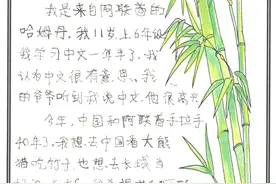 我是来自阿联酋的
哈姆母。我11岁，上6年级
我学习中文一年半了。我
认为中文很有意思。我
的爷爷听到我说中文，他很高兴
今年，中国和阿联酋手拉手
40年了。我想去中国看大熊
猫吃竹子也想去长城当